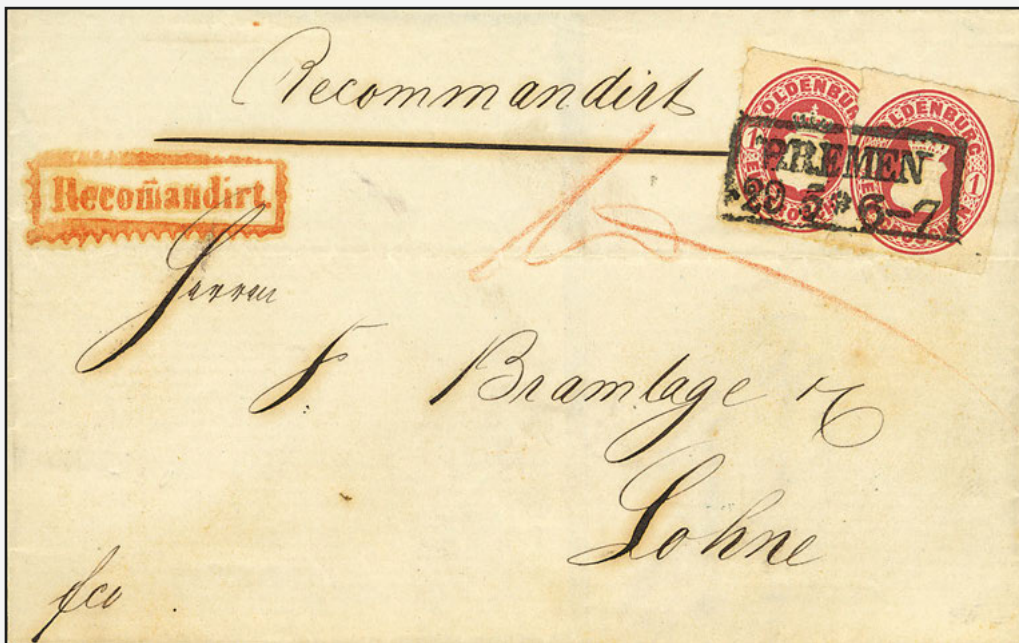 Recommandirt
OLDENBURG OLDENBURG
1 1
BREMEN
29 5 * 6-7
Recom̄andirt.
Herren
F. Bramlage
Lohne
fco